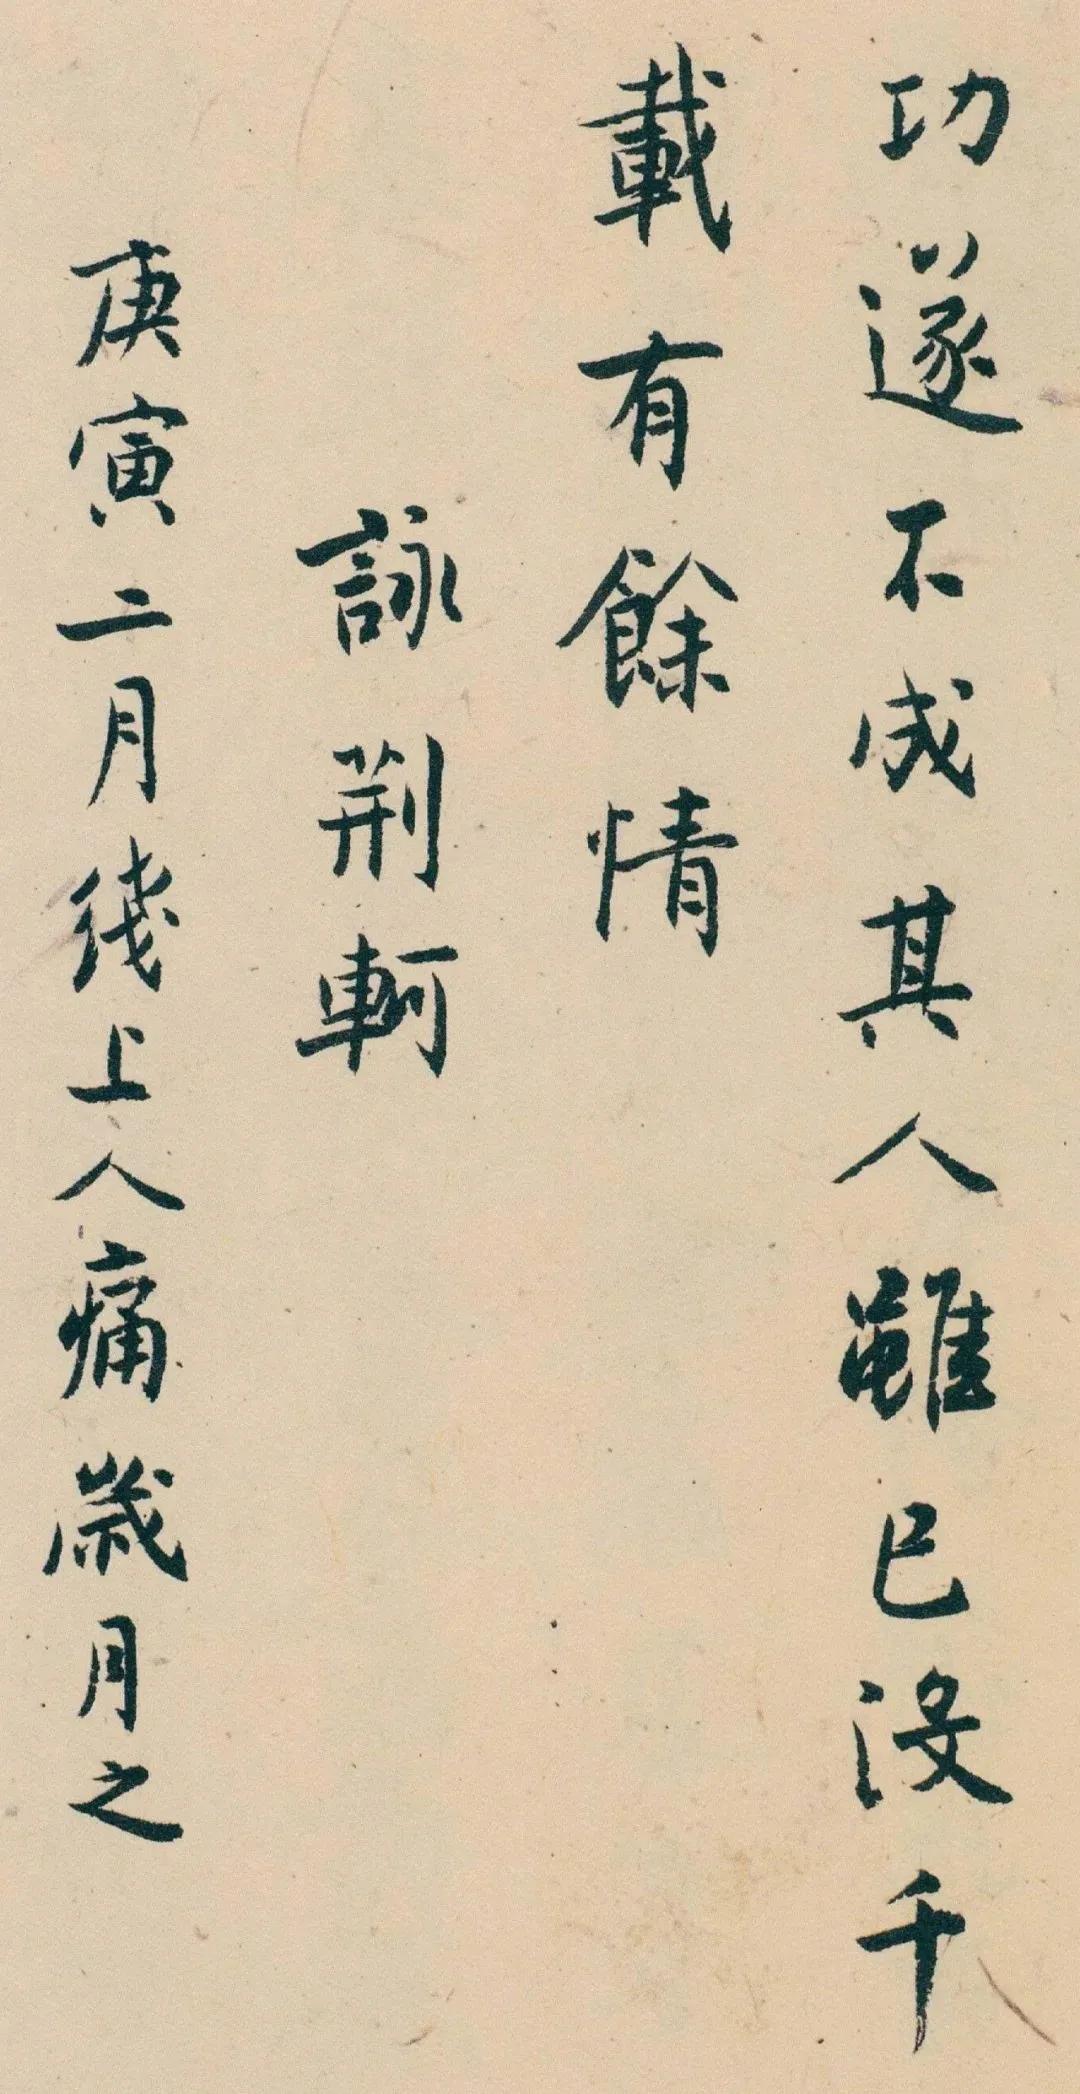 功遂不成其人雖已沒千
載有餘情
詠荆軻
庚寅二月綫上人痛歲月之